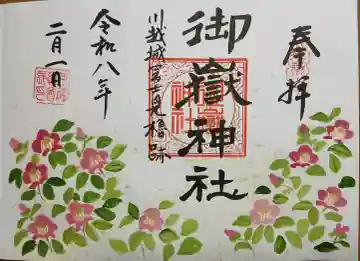 奉拝
御嶽神社
川越城富士見櫓跡
令和八年
二月一日